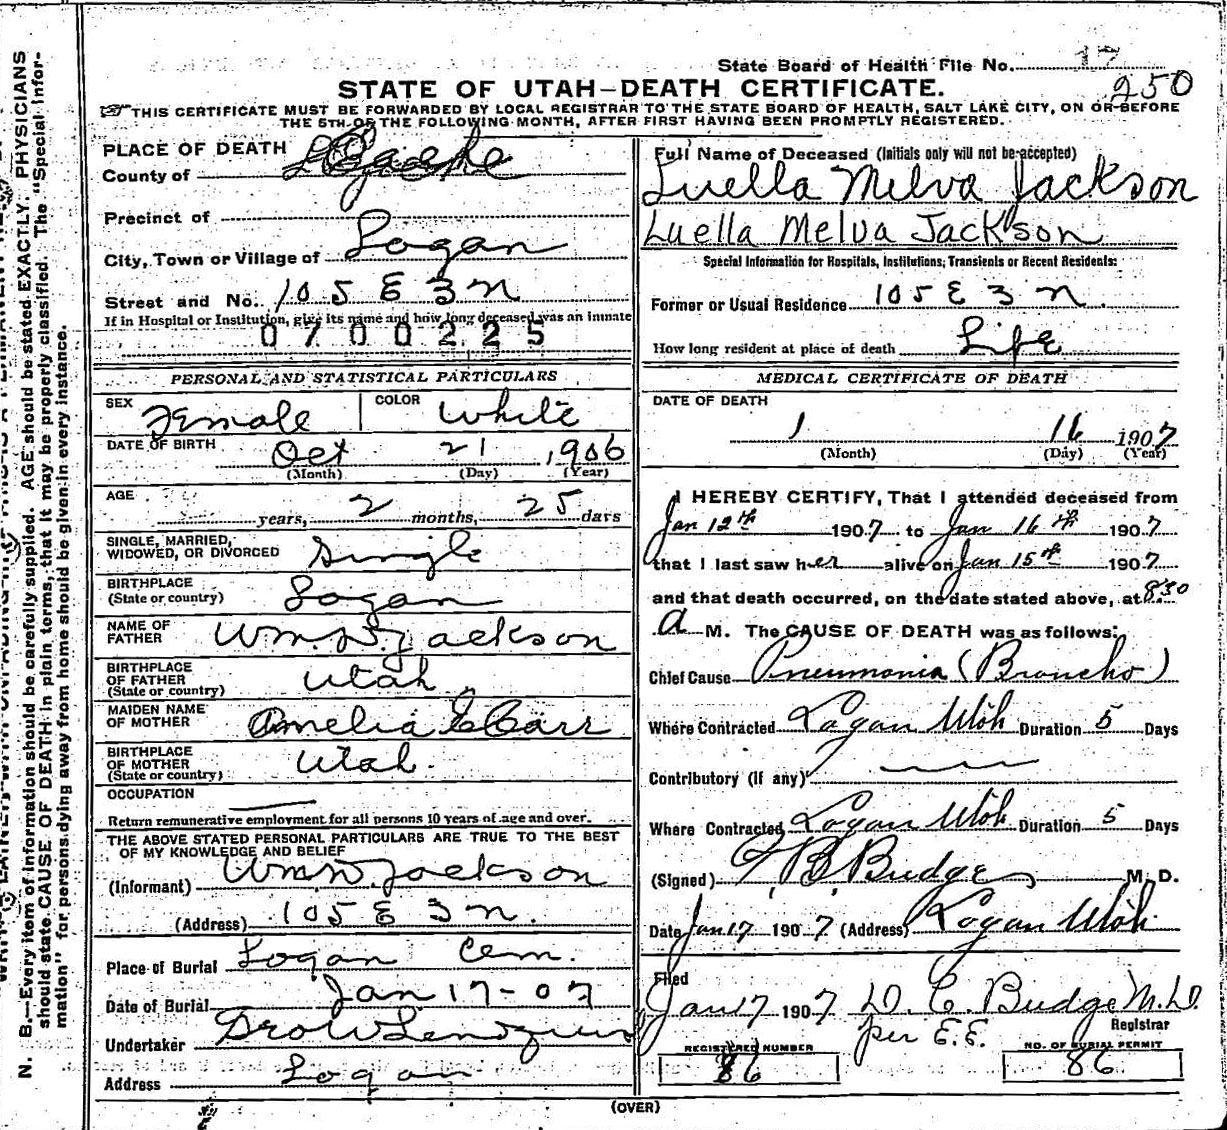 State Board of Health File No. 17
250
STATE OF UTAH—DEATH CERTIFICATE.
THIS CERTIFICATE MUST BE FORWARDED BY LOCAL REGISTRAR TO THE STATE BOARD OF HEALTH, SALT LAKE CITY, ON OR BEFORE
THE 5TH OF THE FOLLOWING MONTH, AFTER FIRST HAVING BEEN PROMPTLY REGISTERED.
PLACE OF DEATH
County of Cache
Precinct of
City, Town or Village of Logan
Street and No. 105 E 3 N
If in Hospital or Institution, give its name and how long deceased was an inmate
0700225
PERSONAL AND STATISTICAL PARTICULARS
SEX Female COLOR White
DATE OF BIRTH Oct 21, 1906
(Month) (Day) (Year)
AGE years, 2 months, 25 days
SINGLE, MARRIED,
WIDOWED, OR DIVORCED Single
BIRTHPLACE
(State or country) Logan
NAME OF
FATHER Wm. N. Jackson
BIRTHPLACE
OF FATHER
(State or country) Utah
MAIDEN NAME
OF MOTHER Amelia E Carr
BIRTHPLACE
OF MOTHER
(State or country) Utah.
OCCUPATION
Return remunerative employment for all persons 10 years of age and over.
THE ABOVE STATED PERSONAL PARTICULARS ARE TRUE TO THE BEST
OF MY KNOWLEDGE AND BELIEF
(Informant) Wm N. Jackson
(Address) 105 E 3 N.
Place of Burial Logan Cem.
Date of Burial Jan 17-07
Undertaker Geo W
Address Logan
Full Name of Deceased (Initials only will not be accepted)
Luella Melva Jackson
Luella Melva Jackson
Special Information for Hospitals, Institutions, Transients or Recent Residents:
Former or Usual Residence 105 E 3 N.
How long resident at place of death Life
MEDICAL CERTIFICATE OF DEATH
DATE OF DEATH
1 16 1907
(Month) (Day) (Year)
I HEREBY CERTIFY, That I attended deceased from
Jan 12th 1907 to Jan 16th 1907
that I last saw her alive on Jan 15th 1907
and that death occurred, on the date stated above, at 8.30
a M. The CAUSE OF DEATH was as follows:
Chief Cause Pneumonia (Broncho)
Where Contracted Logan Utah Duration 5 Days
Contributory (If any)
Where Contracted Logan Utah Duration 5 Days
(Signed) Budge M. D.
Date Jan 17 1907 (Address) Logan Utah
Filed
Jan 17 1907 D. C. Budge M.D.
per E.E. Registrar
REGISTERED NUMBER
86
NO. OF BURIAL PERMIT
86
(OVER)
N. B.—Every item of information should be carefully supplied. AGE should be stated EXACTLY. PHYSICIANS
should state CAUSE OF DEATH in plain terms, that it may be properly classified. The "Special Infor-
mation" for persons dying away from home should be given in every instance.